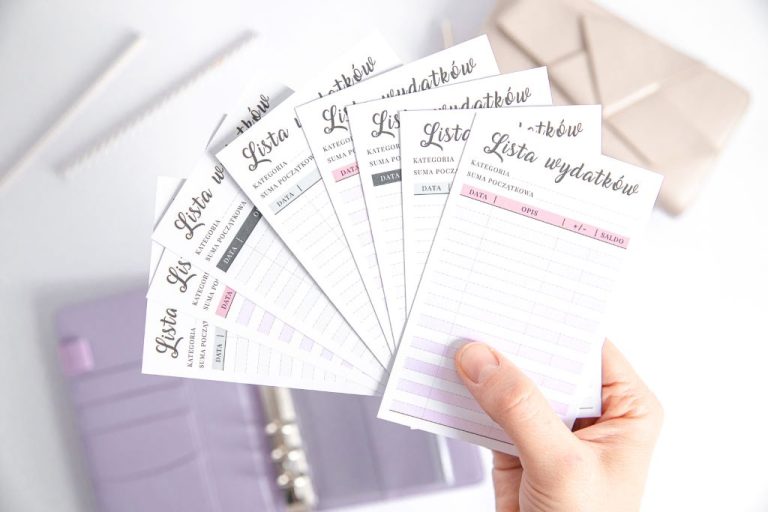 Lista wydatków
KATEGORIA
SUMA POCZĄTKOWA
DATA
Lis
KATEGORIA
SUMA PO
DATA
Lista wydatków
KATEGORIA
SUMA POCZĄTKOWA
DATA
Lista wydatków
KATEGORIA
SUMA POCZĄTKOWA
DATA
Lista wydatków
KATEGORIA
SUMA POCZĄ
DATA
Lista wydatków
KATEGORIA
SUMA POCZĄ
DATA
Lista wydatków
KATEGORIA
SUMA POCZĄ
DATA
Lista wydatków
KATEGORIA
SUMA POCZĄTKOWA
DATA OPIS +/- SALDO